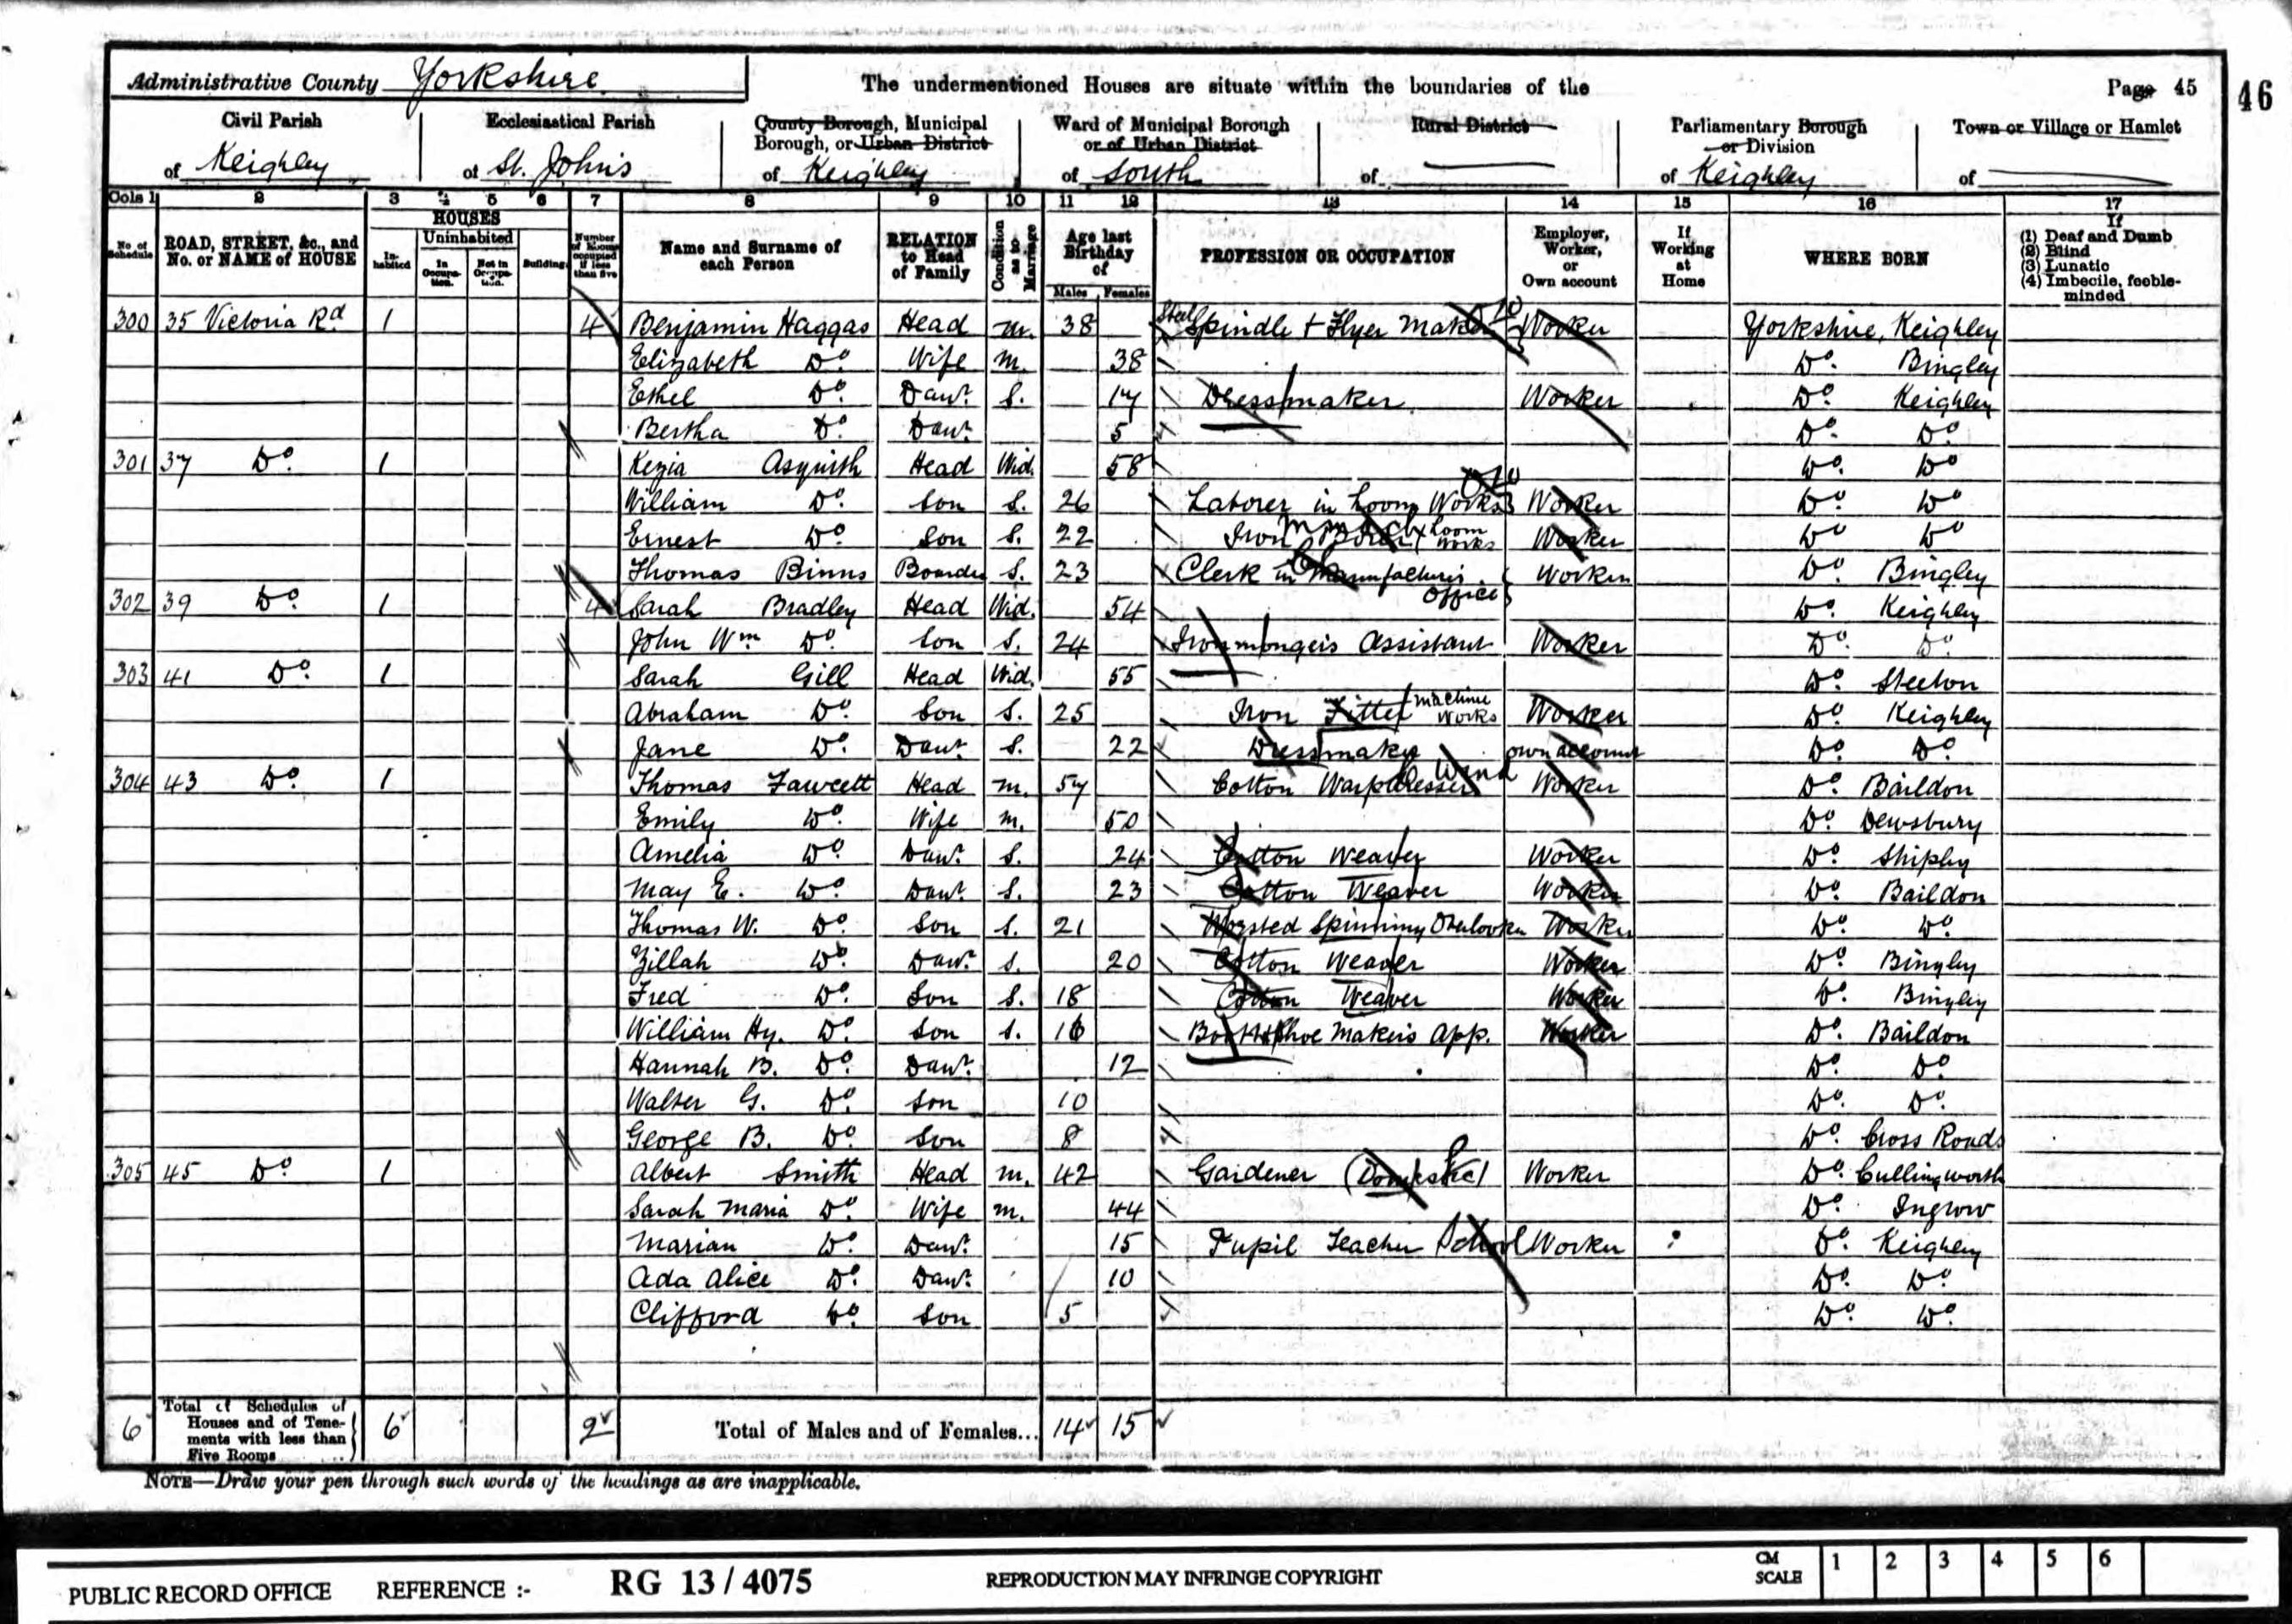 Administrative County Yorkshire The undermentioned Houses are situate within the boundaries of the Page 45 46
Civil Parish Ecclesiastical Parish County Borough, Municipal Borough, or Urban District Ward of Municipal Borough or of Urban District Rural District Parliamentary Borough or Division Town or Village or Hamlet
of Keighley of St. John's of Keighley of South of of Keighley of
Cols 1 2 3 4 5 6 7 8 9 10 11 12 13 14 15 16 17
No. of Schedule ROAD, STREET, &c., and No. or NAME of HOUSE HOUSES In-habited Uninhabited In Occupa-tion. Not in Occupa-tion. Building Number of Rooms occupied if less than five Name and Surname of each Person RELATION to Head of Family Condition as to Marriage Age last Birthday of Males Females PROFESSION OR OCCUPATION Employer, Worker, or Own account If Working at Home WHERE BORN If (1) Deaf and Dumb (2) Blind (3) Lunatic (4) Imbecile, feeble-minded
300 35 Victoria Rd 1 4 Benjamin Haggas Head M. 38 Steel Spindle + Flyer Maker Worker Yorkshire, Keighley
Elizabeth Do. Wife M. 38 Do. Bingley
Ethel Do. Daur. S. 17 Dressmaker Worker Do. Keighley
Bertha Do. Daur. 5 Do. Do.
301 37 Do. 1 Kezia Asquith Head Wid. 58 Do. Do.
William Do. Son S. 26 Laborer in Loom Works Worker Do. Do.
Ernest Do. Son S. 22 Iron Loom Works Worker Do. Do.
Thomas Binns Boarder S. 23 Clerk in Manufacturers Office Worker Do. Bingley
302 39 Do. 1 4 Sarah Bradley Head Wid. 54 Do. Keighley
John Wm Do. Son S. 24 Ironmongers Assistant Worker Do. Do.
303 41 Do. 1 Sarah Gill Head Wid. 55 Do. Steeton
Abraham Do. Son S. 25 Iron Fitter Machine Works Worker Do. Keighley
Jane Do. Daur. S. 22 Dressmaker own account Do. Do.
304 43 Do. 1 Thomas Fawcett Head M. 57 Cotton Warpdresser Wind Worker Do. Baildon
Emily Do. Wife M. 50 Do. Dewsbury
Amelia Do. Daur. S. 24 Cotton Weaver Worker Do. Shipley
May E. Do. Daur. S. 23 Cotton Weaver Worker Do. Baildon
Thomas W. Do. Son S. 21 Worsted Spinning Overlooker Worker Do. Do.
Zillah Do. Daur. S. 20 Cotton Weaver Worker Do. Bingley
Fred Do. Son S. 18 Cotton Weaver Worker Do. Bingley
William Hy. Do. Son S. 16 Boot + Shoe Makers App. Worker Do. Baildon
Hannah B. Do. Daur. 12 Do. Do.
Walter G. Do. Son 10 Do. Do.
George B. Do. Son 8 Do. Cross Roads
305 45 Do. 1 Albert Smith Head M. 42 Gardener (Domestic) Worker Do. Cullingworth
Sarah Maria Do. Wife M. 44 Do. Ingrow
Marian Do. Daur. 15 Pupil Teacher School Worker Do. Keighley
Ada Alice Do. Daur. 10 Do. Do.
Clifford Do. Son 5 Do. Do.
6 Total of Schedules of Houses and of Tene-ments with less than Five Rooms 6 2 Total of Males and of Females... 14 15
NOTE—Draw your pen through such words of the headings as are inapplicable.
PUBLIC RECORD OFFICE REFERENCE :- RG 13 / 4075 REPRODUCTION MAY INFRINGE COPYRIGHT CM SCALE 1 2 3 4 5 6